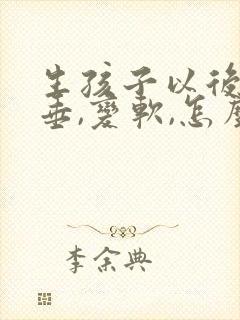 生孩子以後
垂,變軟,怎麼
李余典